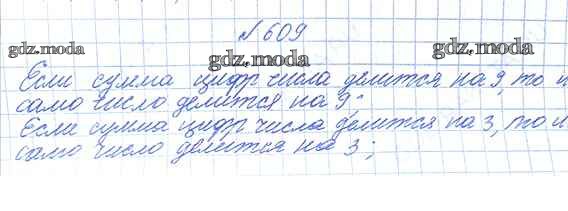 №609
gdz.moda gdz.moda gdz.moda
Если сумма цифр числа делится на 9, то и
само число делится на 9;
Если сумма цифр числа делится на 3, то и
само число делится на 3;